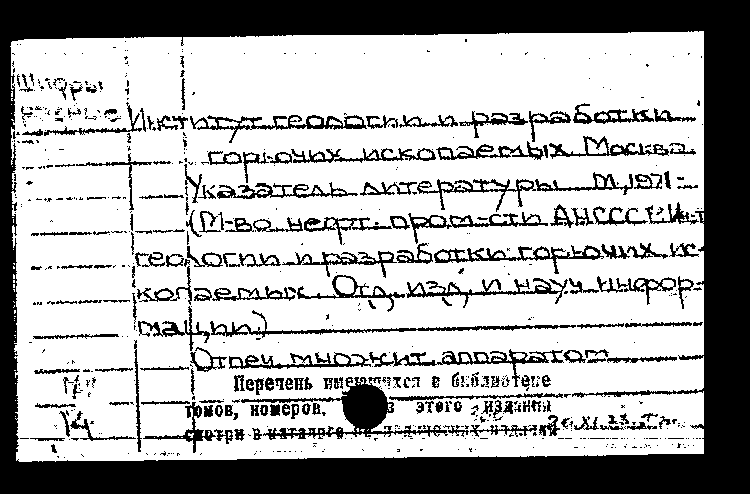 Шифры
разные
Институт геологии и разработки
горючих ископаемых. Москва.
Указатель литературы. М., 1971-
(М-во нефт. пром-сти АН СССР. Ин-т
геологии и разработки горючих ис-
копаемых. Отд. изд. и науч. инфор-
мации.)
Отпеч. множит. аппаратом
Перечень имеющихся в библиотеке
томов, номеров, этого издания
смотри в каталоге периодических изданий